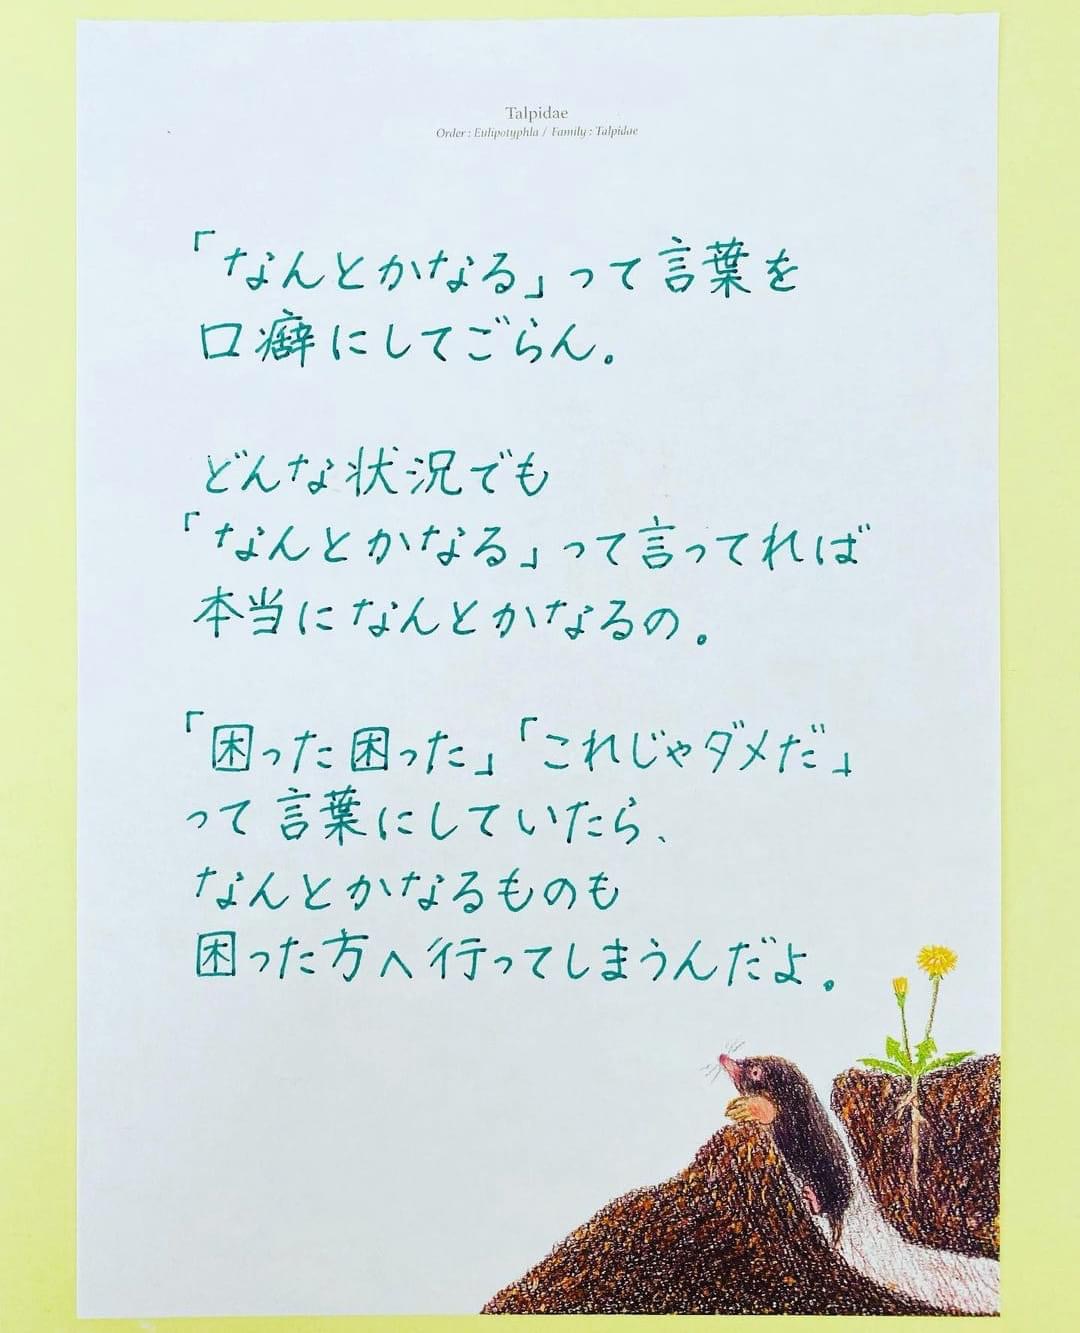 Talpidae
Order : Eulipotyphla / Family : Talpidae
「なんとかなる」って言葉を
口癖にしてごらん。
どんな状況でも
「なんとかなる」って言ってれば
本当になんとかなるの。
「困った困った」「これじゃダメだ」
って言葉にしていたら、
なんとかなるものも
困った方へ行ってしまうんだよ。